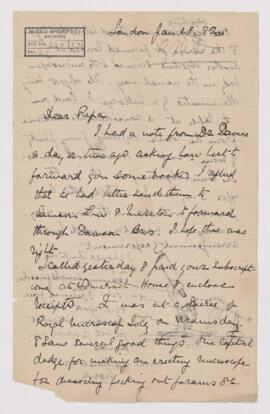 McGILL UNIVERSITY
ARCHIVES
London Jan
Dear Papa
I had a note from Dr Davies
a day or two ago asking how best to
forward you some books. I replied
that he had better send them to
Sampson Low & Marston to forward
through Dawson Bros. I hope this was
right.
I called yesterday & paid your Subscript-
ions at Somerset House & enclose
receipts. I was at a Soiree of
Royal Microscop Socy on Wednesday
& saw several good things. One capital
dodge for making an erecting microscope
for dissecting picking out forams &c